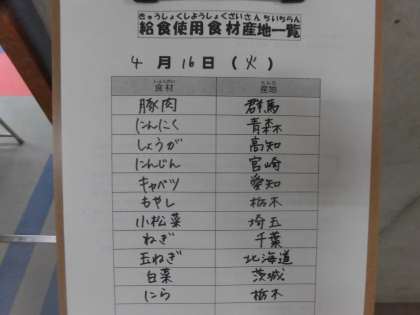 きゅうしょくしようしょくざいさんちいちらん
給食使用食材産地一覧
4月16日(火)
食材 産地
豚肉 群馬
にんにく 青森
しょうが 高知
にんじん 宮崎
キャベツ 愛知
もやし 栃木
小松菜 埼玉
ねぎ 千葉
玉ねぎ 北海道
白菜 茨城
にら 栃木